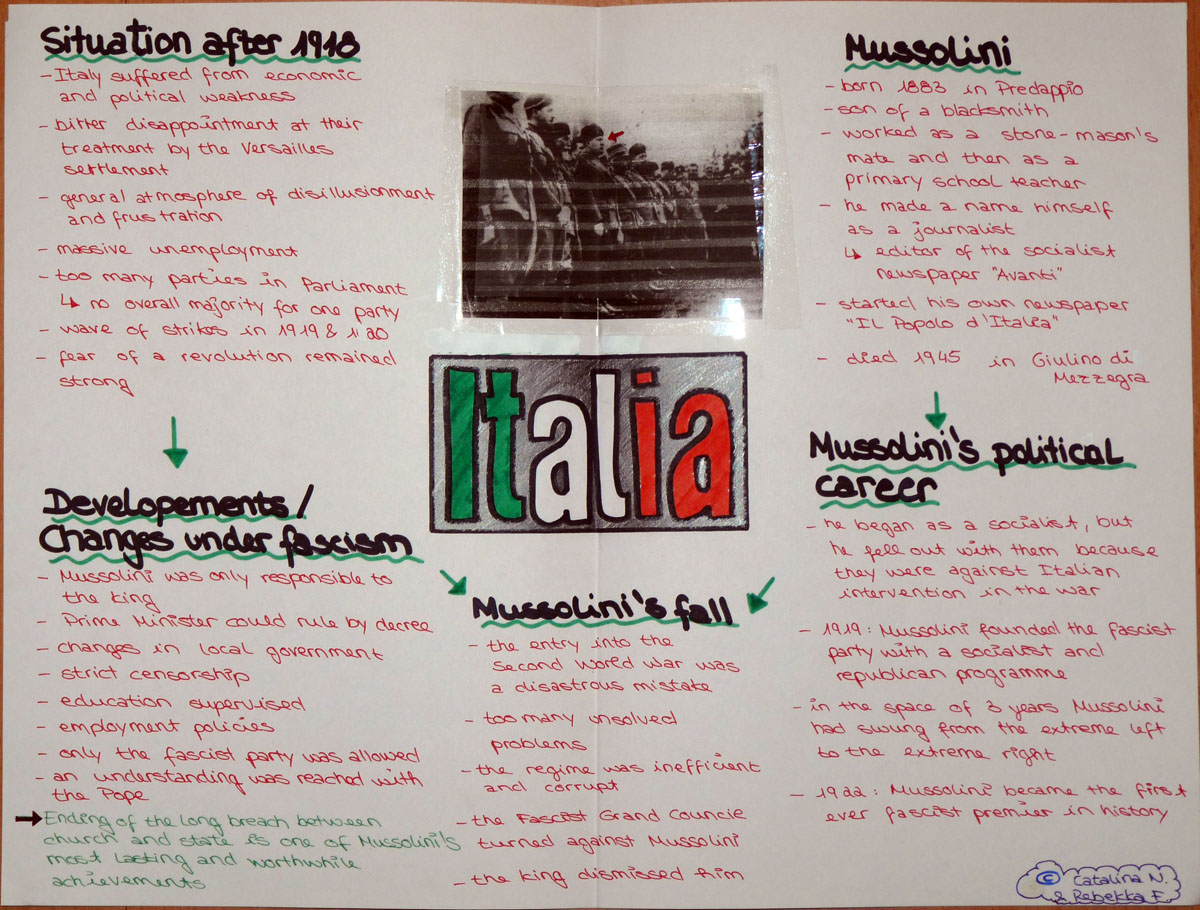 Situation after 1918
- Italy suffered from economic
and political weakness
- bitter disappointment at their
treatment by the Versailles
settlement
- general atmosphere of disillusionment
and frustration
- massive unemployment
- too many parties in Parliament
↳ no overall majority for one party
- wave of strikes in 1919 & 1920
- fear of a revolution remained
strong
Developements /
Changes under fascism
- Mussolini was only responsible to
the king
- Prime Minister could rule by decree
- changes in local government
- strict censorship
- education supervised
- employment policies
- only the fascist party was allowed
- an understanding was reached with
the Pope
→ Ending of the long breach between
church and state is one of Mussolini's
most lasting and worthwhile
achievements
Italia
Mussolini's fall
- the entry into the
Second World War was
a disastrous mistake
- too many unsolved
problems
- the regime was inefficient
and corrupt
- the Fascist Grand Councie
turned against Mussolini
- the king dismissed him
Mussolini
- born 1883 in Predappio
- son of a blacksmith
- worked as a stone-mason's
mate and then as a
primary school teacher
- he made a name himself
as a journalist
↳ editor of the socialist
newspaper "Avanti"
- started his own newspaper
"IL Popolo d'Italia"
- died 1945 in Giulino di
Mezzegra
Mussolini's political
career
- he began as a socialist, but
he fell out with them because
they were against Italian
intervention in the war
- 1919: Mussolini founded the fascist
party with a socialist and
republican programme
- in the space of 3 years Mussolini
had swung from the extreme left
to the extreme right
- 1922: Mussolini became the first
ever fascist premier in history
© Catalina N.
& Rebekka F.